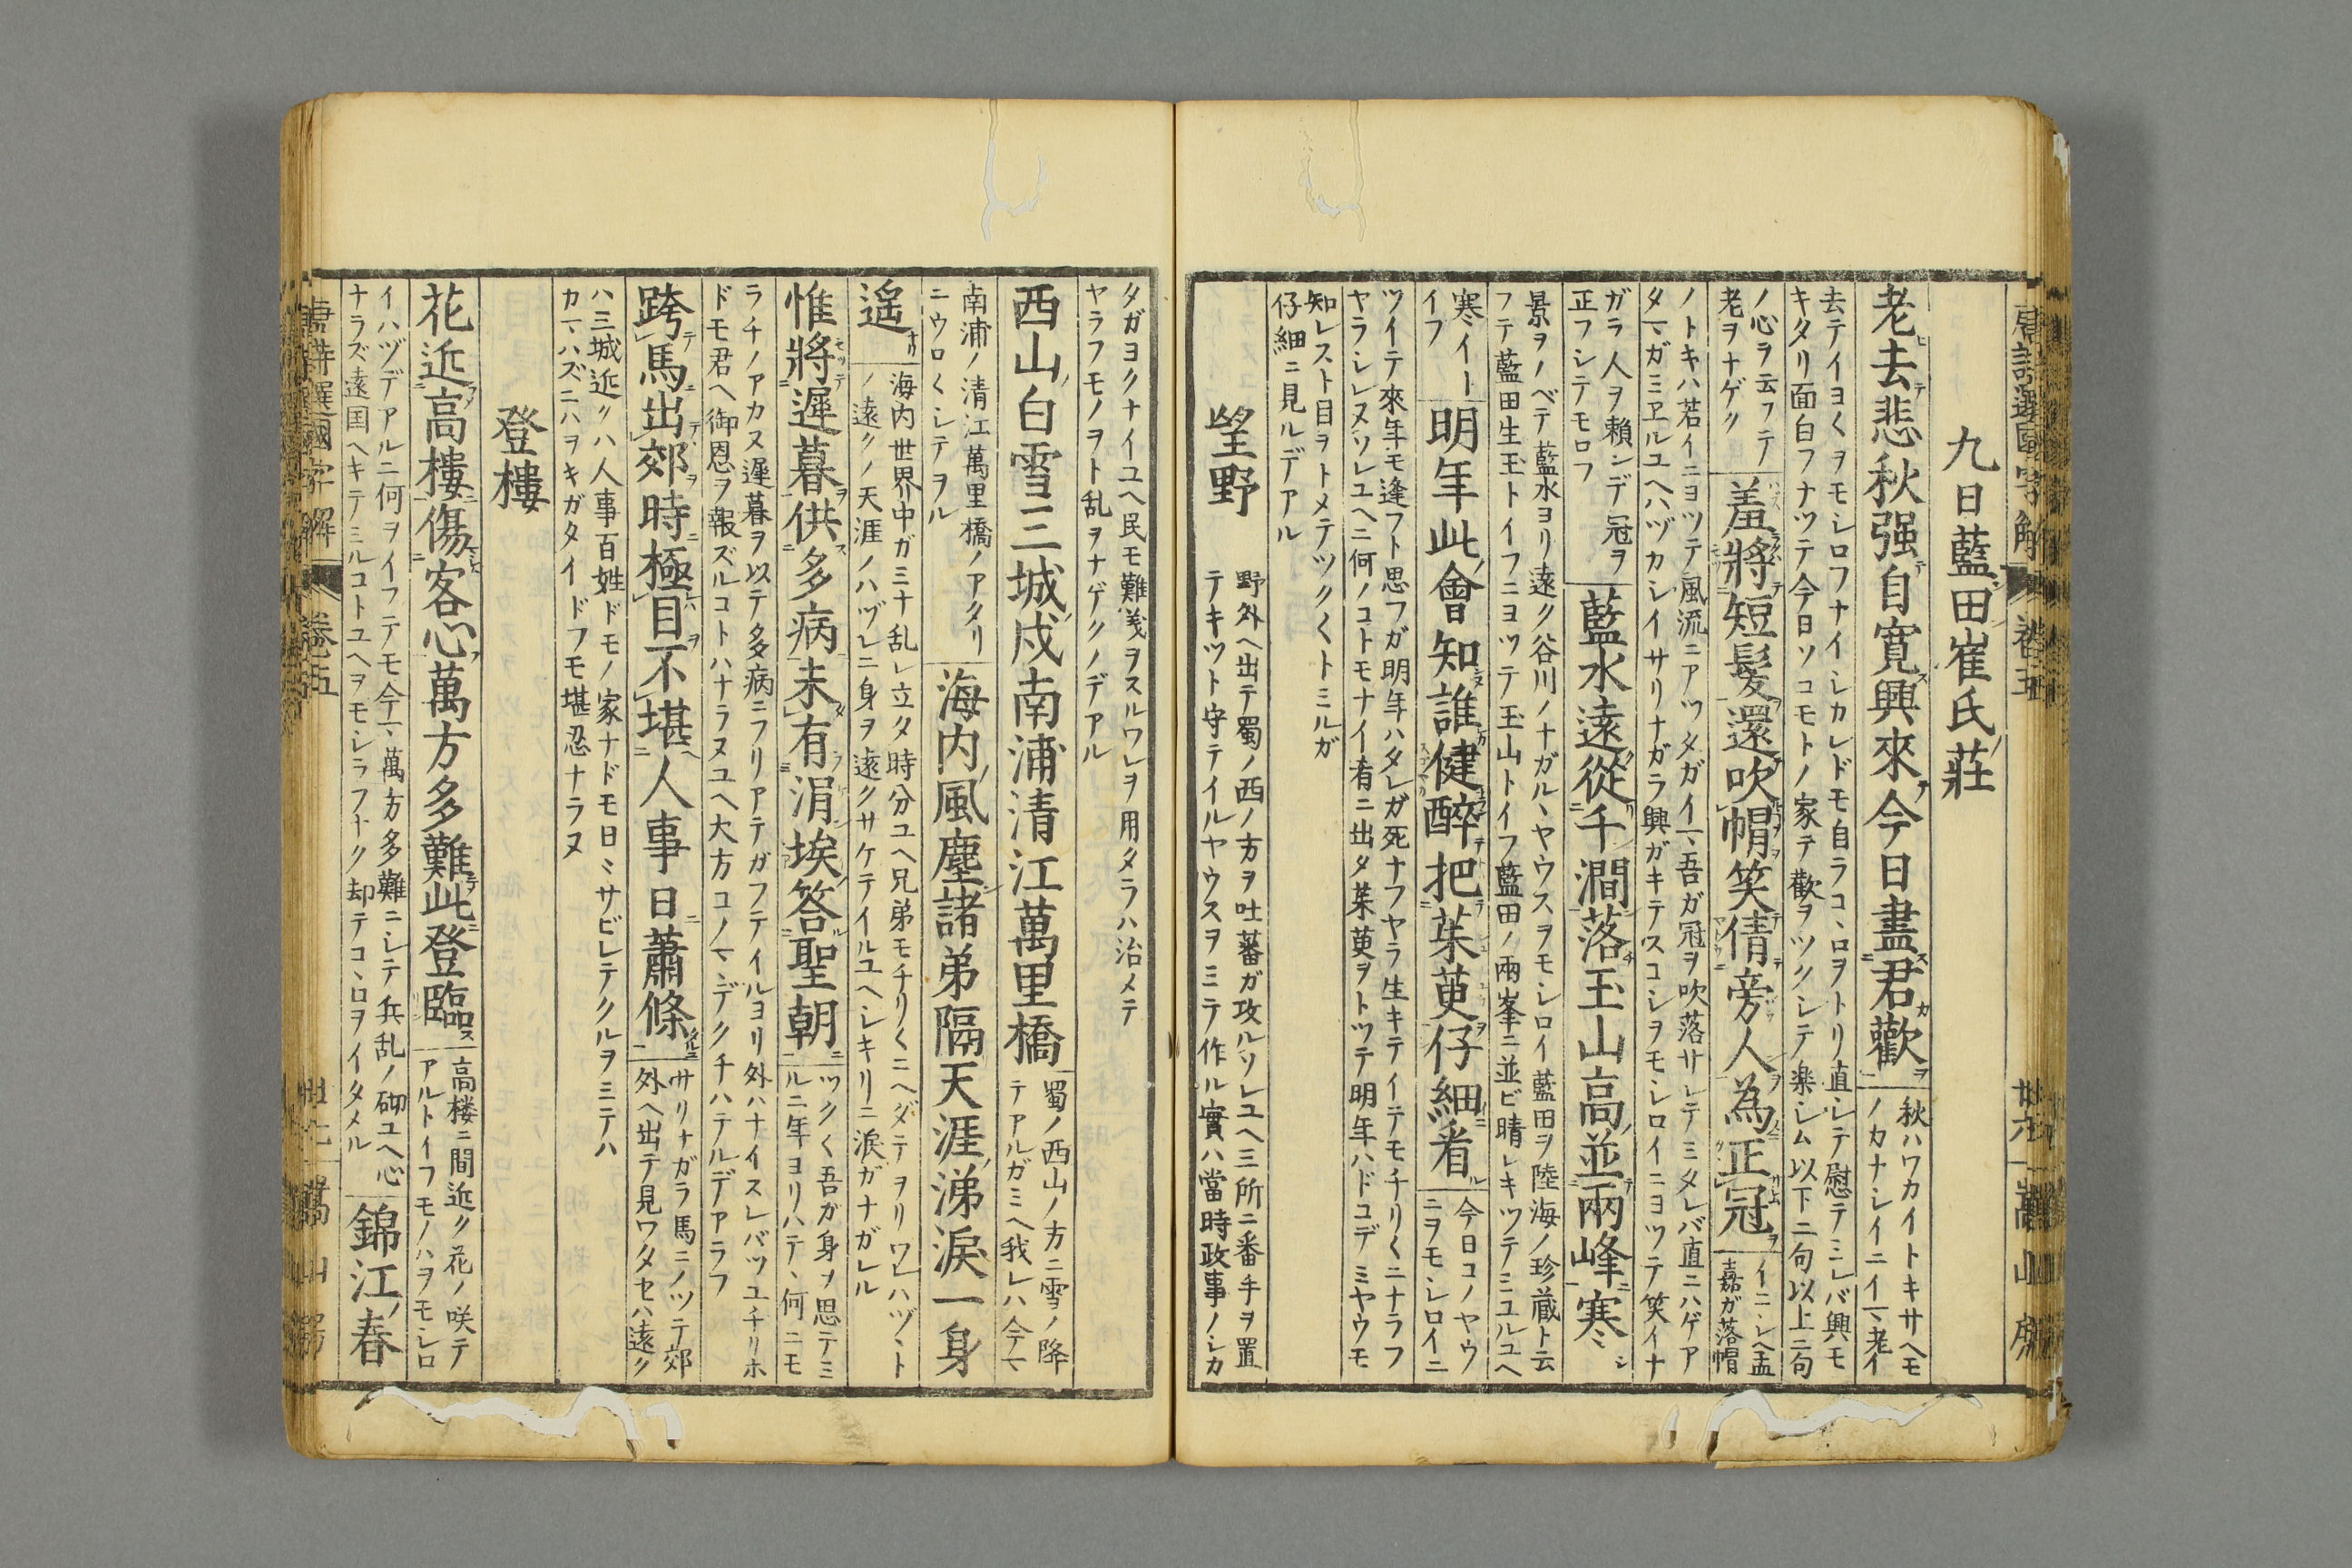 九日藍田崔氏莊
老去悲秋强自寛興來今日盡君歡
秋ハワカイトキサヘモ
ノカナシイニイマ老イ
去テイヨ〱ヲモシロフナイシカレドモ自ラコヽロヲトリ直シテ慰テミレバ興モ
キタリ面白フナツテ今日ソコモトノ家テ歡ヲツクシテ楽シム以下二句以上ニ句
ノ心ヲ云フテ
老ヲナゲク
羞將短髪還吹帽笑倩旁人為正冠
イニシヘ孟
嘉ガ落帽
ノトキハ若イニヨツテ風流ニアツタガイマ吾ガ冠ヲ吹落サレテミタレバ直ニハゲア
タマガミヱルユヘハヅカシイサリナガラ興ガキテスコシヲモシロイニヨツテ笑イナ
ガラ人ヲ賴ンデ冠ヲ
正フシテモロフ
藍水遠從千澗落玉山高並兩峰寒
景ヲノベテ藍水ヨリ遠ク谷川ノナガルヽヤウスヲモシロイ藍田ヲ陸海ノ珍蔵ト云
フテ藍田生玉トイフニヨツテ玉山トイフ藍田ノ兩峯ニ並ビ晴レキツテミユルユヘ
寒イト
イフ
明年此會知誰健醉把茱萸仔細看
今日コノヤウ
ニヲモシロイニ
ツイテ來年モ逢フト思フガ明年ハタレガ死ナフヤラ生キテイテモチリ〱ニナラフ
ヤラシレヌソレユヘニ何ノコトモナイ肴ニ出タ茱萸ヲトツテ明年ハドコデミヤウモ
知レスト目ヲトメテツク〱トミルガ
仔細ニ見ルデアル
望野
野外ヘ出テ蜀ノ西ノ方ヲ吐蕃ガ攻ルソレユヘ三所ニ番手ヲ置
テキツト守テイルヤウスヲミテ作ル實ハ當時政事ノシカ
タガヨクナイユヘ民モ難義ヲスルワレヲ用タラハ治メテ
ヤラフモノヲト乱ヲナゲクノデアル
西山白雪三城戍南浦清江萬里橋
蜀ノ西山ノ方ニ雪ノ降
テアルガミヘ我レハ今マ
南浦ノ清江萬里橋ノアタリ
ニウロ〱シテヲル
海内風塵諸弟隔天涯涕涙一身
遙
海内世界中ガミナ乱レ立タ時分ユヘ兄弟モチリ〱ニヘダテヲリワレハヅヽト
ノ遠クノ天涯ノハヅレニ身ヲ遠クサケテイルユヘシキリニ涙ガナガレル
惟將遲暮供多病未有涓埃答聖朝
ツク〱吾ガ身ヲ思テミ
ルニ年ヨリハテヽ何ニモ
ラチノアカヌ遲暮ヲ以テ多病ニフリアテガフテイルヨリ外ハナイスレバツユチリホ
ドモ君ヘ御恩ヲ報ズルコトハナラヌユヘ大方コノマヽデクチハテルデアラフ
跨馬出郊時極目不堪人事日蕭條
サリナガラ馬ニノツテ郊
外ヘ出テ見ワタセハ遠ク
ハ三城近クハ人事百姓ドモノ家ナドモ日ミサビレテクルヲミテハ
カマハズニハヲキガタイドフモ堪忍ナラヌ
登樓
花近高樓傷客心萬方多難此登臨
高楼ニ間近ク花ノ咲テ
アルトイフモノハヲモシロ
イハヅデアルニ何ヲイフテモ今マ萬方多難ニシテ兵乱ノ砌ユヘ心
ナラズ遠国ヘキテミルコトユヘヲモシラフナク却テコヽロヲイタメル
錦江春